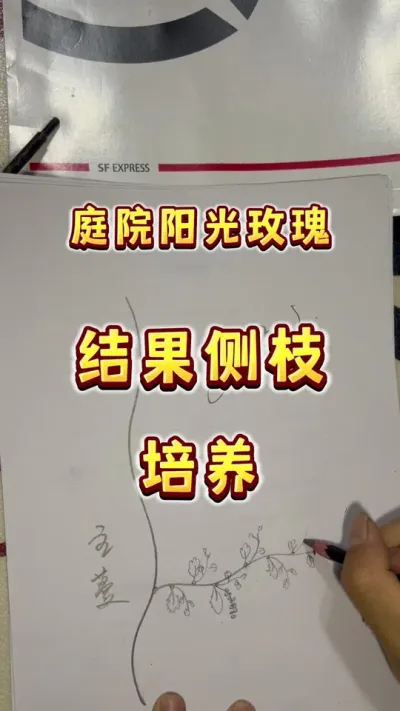 SF EXPRESS
庭院阳光玫瑰
结果侧枝
培养
主蔓